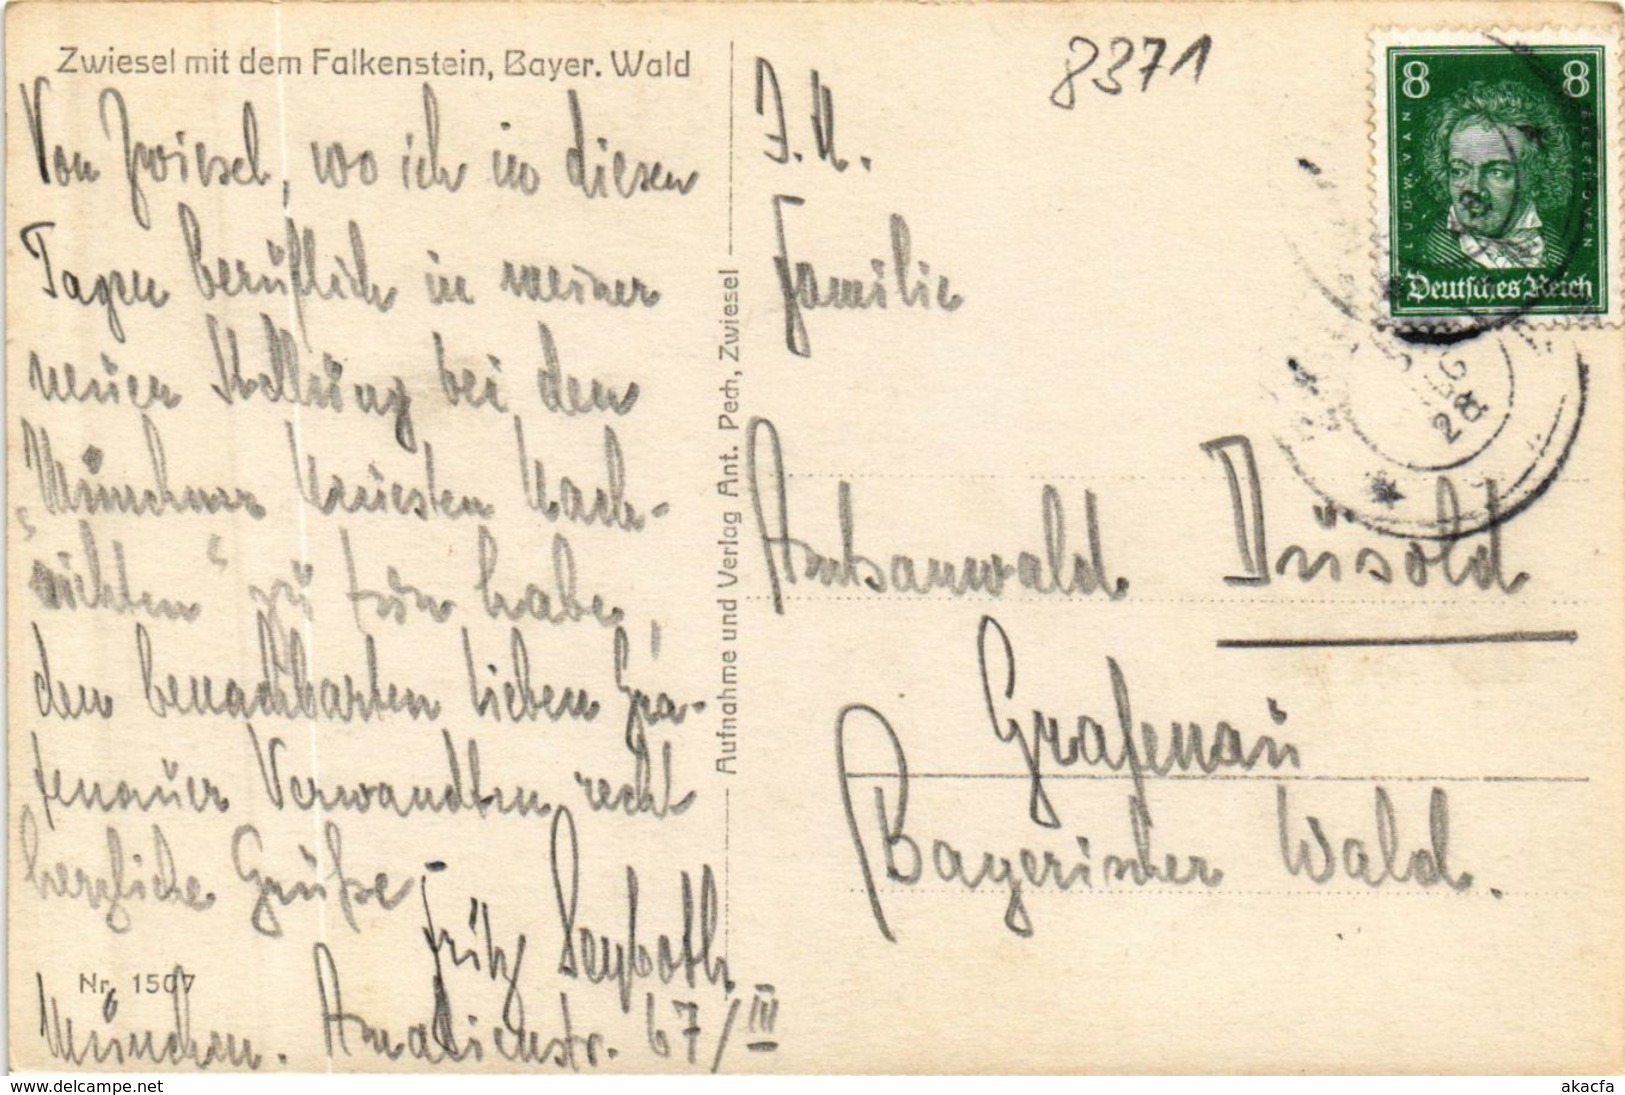 Zwiesel mit dem Falkenstein, Bayer. Wald
Von Zwiesel, wo ich in diesen
Tagen beruflich in meiner
neuen Stellung bei den
„Münchner Neuesten Nach-
richten“ zu tun habe,
den benachbarten lieben Gra-
fenauer Verwandten recht
herzliche Grüße
Fritz Seyboth.
Nr. 1507
München. Amalienstr. 67/III
Aufnahme und Verlag Ant. Pech, Zwiesel
8371
Familie
Amtsanwald Düsold
Grafenau
Bayerischer Wald.
8 8
LUDW. VAN
BEETHOVEN
Deutsches Reich
28
www.delcampe.net
akacfa